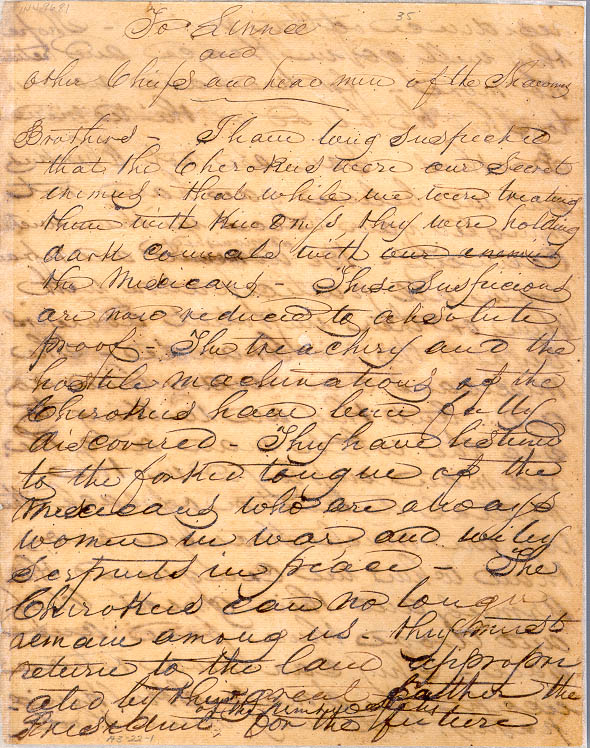 35
To Linnee
and
other Chiefs and head men of the Shawnees
Brothers - I have long suspected
that the Cherokees were our secret
enemies - that while we were treating
them with kindness, they were holding
dark councils with our enemies
the Mexicans - These suspicions
are now reduced to absolute
proof - The treachery and the
hostile machinations of the
Cherokees have been fully
discovered - They have listened
to the forked tongue of the
Mexicans who are always
women in war and wily
Serpents in peace - The
Cherokees can no longer
remain among us - they must
return to the land appropri
-ated by their great Father the
President of the United States
For the future